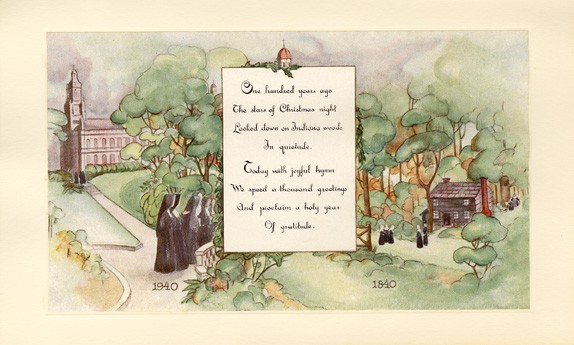 One hundred years ago
The stars of Christmas night
Looked down on Indiana woods
In quietude.
Today with joyful hymn
We speed a thousand greetings
And proclaim a holy year
Of gratitude.
1940
1840